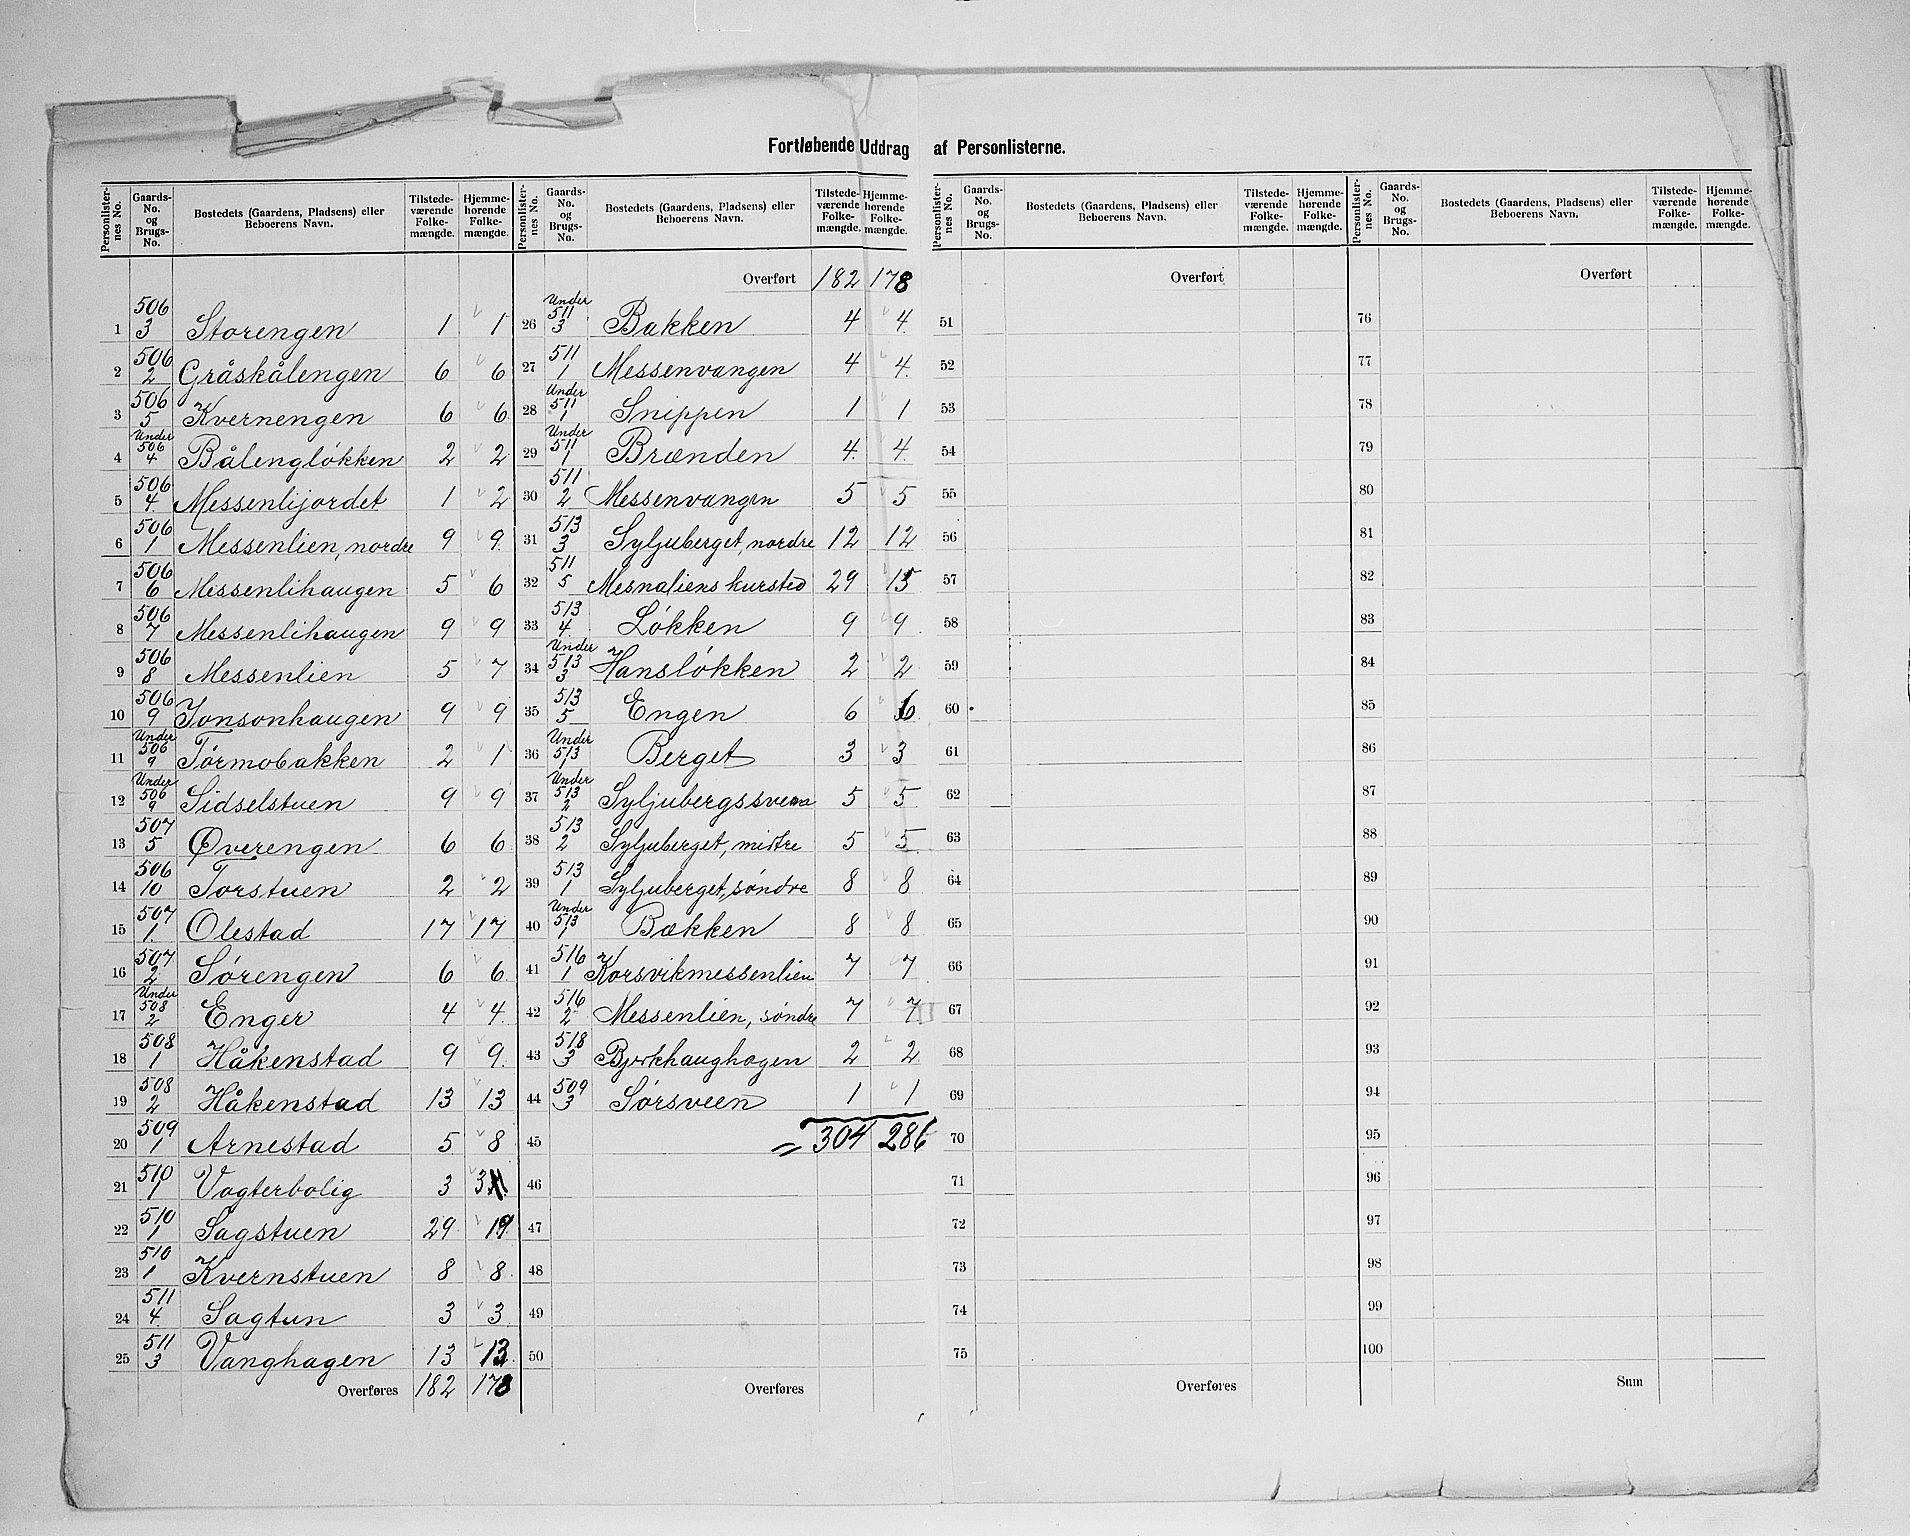 Fortløbende Uddrag af Personlisterne.
Personlisternes No. | Gaards-No. og Brugs-No. | Bostedets (Gaardens, Pladsens) eller Beboerens Navn. | Tilstedeværende Folkemængde. | Hjemmehørende Folkemængde.
1 | 506 3 | Storengen | 1 | 1
2 | 506 2 | Gråskålengen | 6 | 6
3 | 506 5 | Kvernengen | 6 | 6
4 | Under 506 4 | Bålengløkken | 2 | 2
5 | 506 4. | Messenlijordet | 1 | 2
6 | 506 1 | Messenlien, nordre | 9 | 9.
7 | 506 6 | Messenlihaugen | 5 | 6
8 | 506 7 | Messenlihaugen | 9 | 9
9 | 506 8 | Messenlien | 5 | 7
10 | 506 9 | Jonsonhaugen | 9 | 9
11 | Under 506 9 | Tørmobakken | 2 | 1
12 | Under 506 9 | Sidselstuen | 9 | 9
13 | 507 5 | Øverengen | 6 | 6
14 | 506 10 | Torstuen | 2 | 2
15 | 507 1. | Olestad | 17 | 17
16 | 507 2 | Sørengen | 6 | 6
17 | Under 508 2 | Enger | 4 | 4.
18 | 508 1 | Håkenstad | 9 | 9.
19 | 508 2 | Håkenstad | 13 | 13
20 | 509 1 | Arnestad | 5 | 8
21 | 510 1 | Vogterbolig | 3 | 3
22 | 510 1 | Sagstuen | 29 | 19
23 | 510 1 | Kvernstuen | 8 | 8.
24 | 511 4. | Sagtun | 3 | 3.
25 | 511 3 | Vanghagen | 13 | 13.
Overføres | 182 | 178
Personlisternes No. | Gaards-No. og Brugs-No. | Bostedets (Gaardens, Pladsens) eller Beboerens Navn. | Tilstedeværende Folkemængde. | Hjemmehørende Folkemængde.
Overført | 182 | 178
26 | Under 511 3 | Bakken | 4 | 4.
27 | 511 1 | Messenvangen | 4 | 4.
28 | Under 511 1 | Snippen | 1 | 1
29 | Under 511 1 | Brænden | 4. | 4.
30 | 511 2 | Messenvangen | 5 | 5
31 | 513 3 | Syljuberget, nordre | 12 | 12
32 | 511 5 | Mesnaliens kursted | 29 | 15
33 | 513 4. | Løkken | 9 | 9.
34 | Under 513 3 | Hansløkken | 2 | 2
35 | 513 5 | Engen | 6 | 6
36 | Under 513 1 | Berget | 3 | 3
37 | Under 513 2 | Syljubergssveen | 5 | 5.
38 | 513 2 | Syljuberget, midtre | 5 | 5.
39 | 513 1 | Syljuberget, søndre | 8 | 8
40 | Under 513 1 | Bækken | 8 | 8
41 | 516 1 | Korsvikmessenlien | 7 | 7
42 | 516 2 | Messenlien, søndre | 7 | 7
43 | 518 3 | Bjørkhaughagen | 2 | 2
44 | 509 3 | Sørsveen | 1 | 1
45 | = 304 | 286
46
47
48
49
50
Overføres
Personlisternes No. | Gaards-No. og Brugs-No. | Bostedets (Gaardens, Pladsens) eller Beboerens Navn. | Tilstedeværende Folkemængde. | Hjemmehørende Folkemængde.
Overført
51
52
53
54
55
56
57
58
59
60
61
62
63
64
65
66
67
68
69
70
71
72
73
74
75
Overføres
Personlisternes No. | Gaards-No. og Brugs-No. | Bostedets (Gaardens, Pladsens) eller Beboerens Navn. | Tilstedeværende Folkemængde. | Hjemmehørende Folkemængde.
Overført
76
77
78
79
80
81
82
83
84
85
86
87
88
89
90
91
92
93
94
95
96
97
98
99
100
Sum